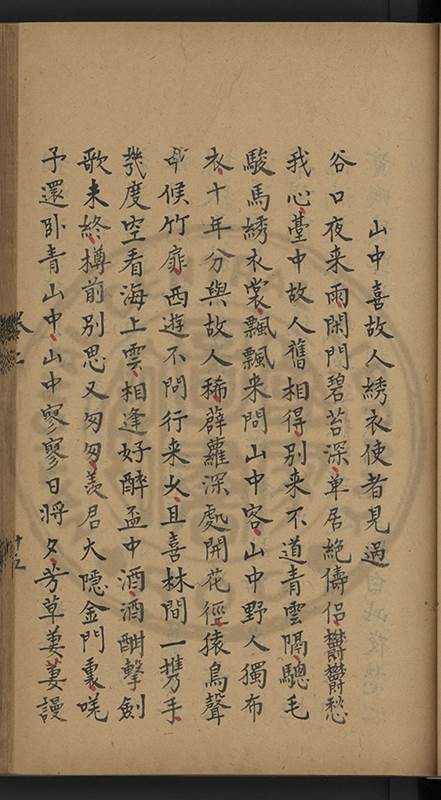 山中喜故人綉衣使者見過
谷口夜来雨閑門碧苔深单居絶儔侣欝欝愁
我心臺中故人舊相得别来不道青雲隔驄毛
駿馬綉衣裳飄飄来問山中客山中野人獨布
衣十年分與故人稀薜蘿深處開花徑猿鳥聲
中候竹扉西遊不問行来久且喜林間一携手
幾度空看海上雲相逢好醉盃中酒酒酣擊劍
歌未終樽前别思又匆匆羨君大隱金門裏咲
予還卧青山中山中寥寥日將夕芳草萋萋謾